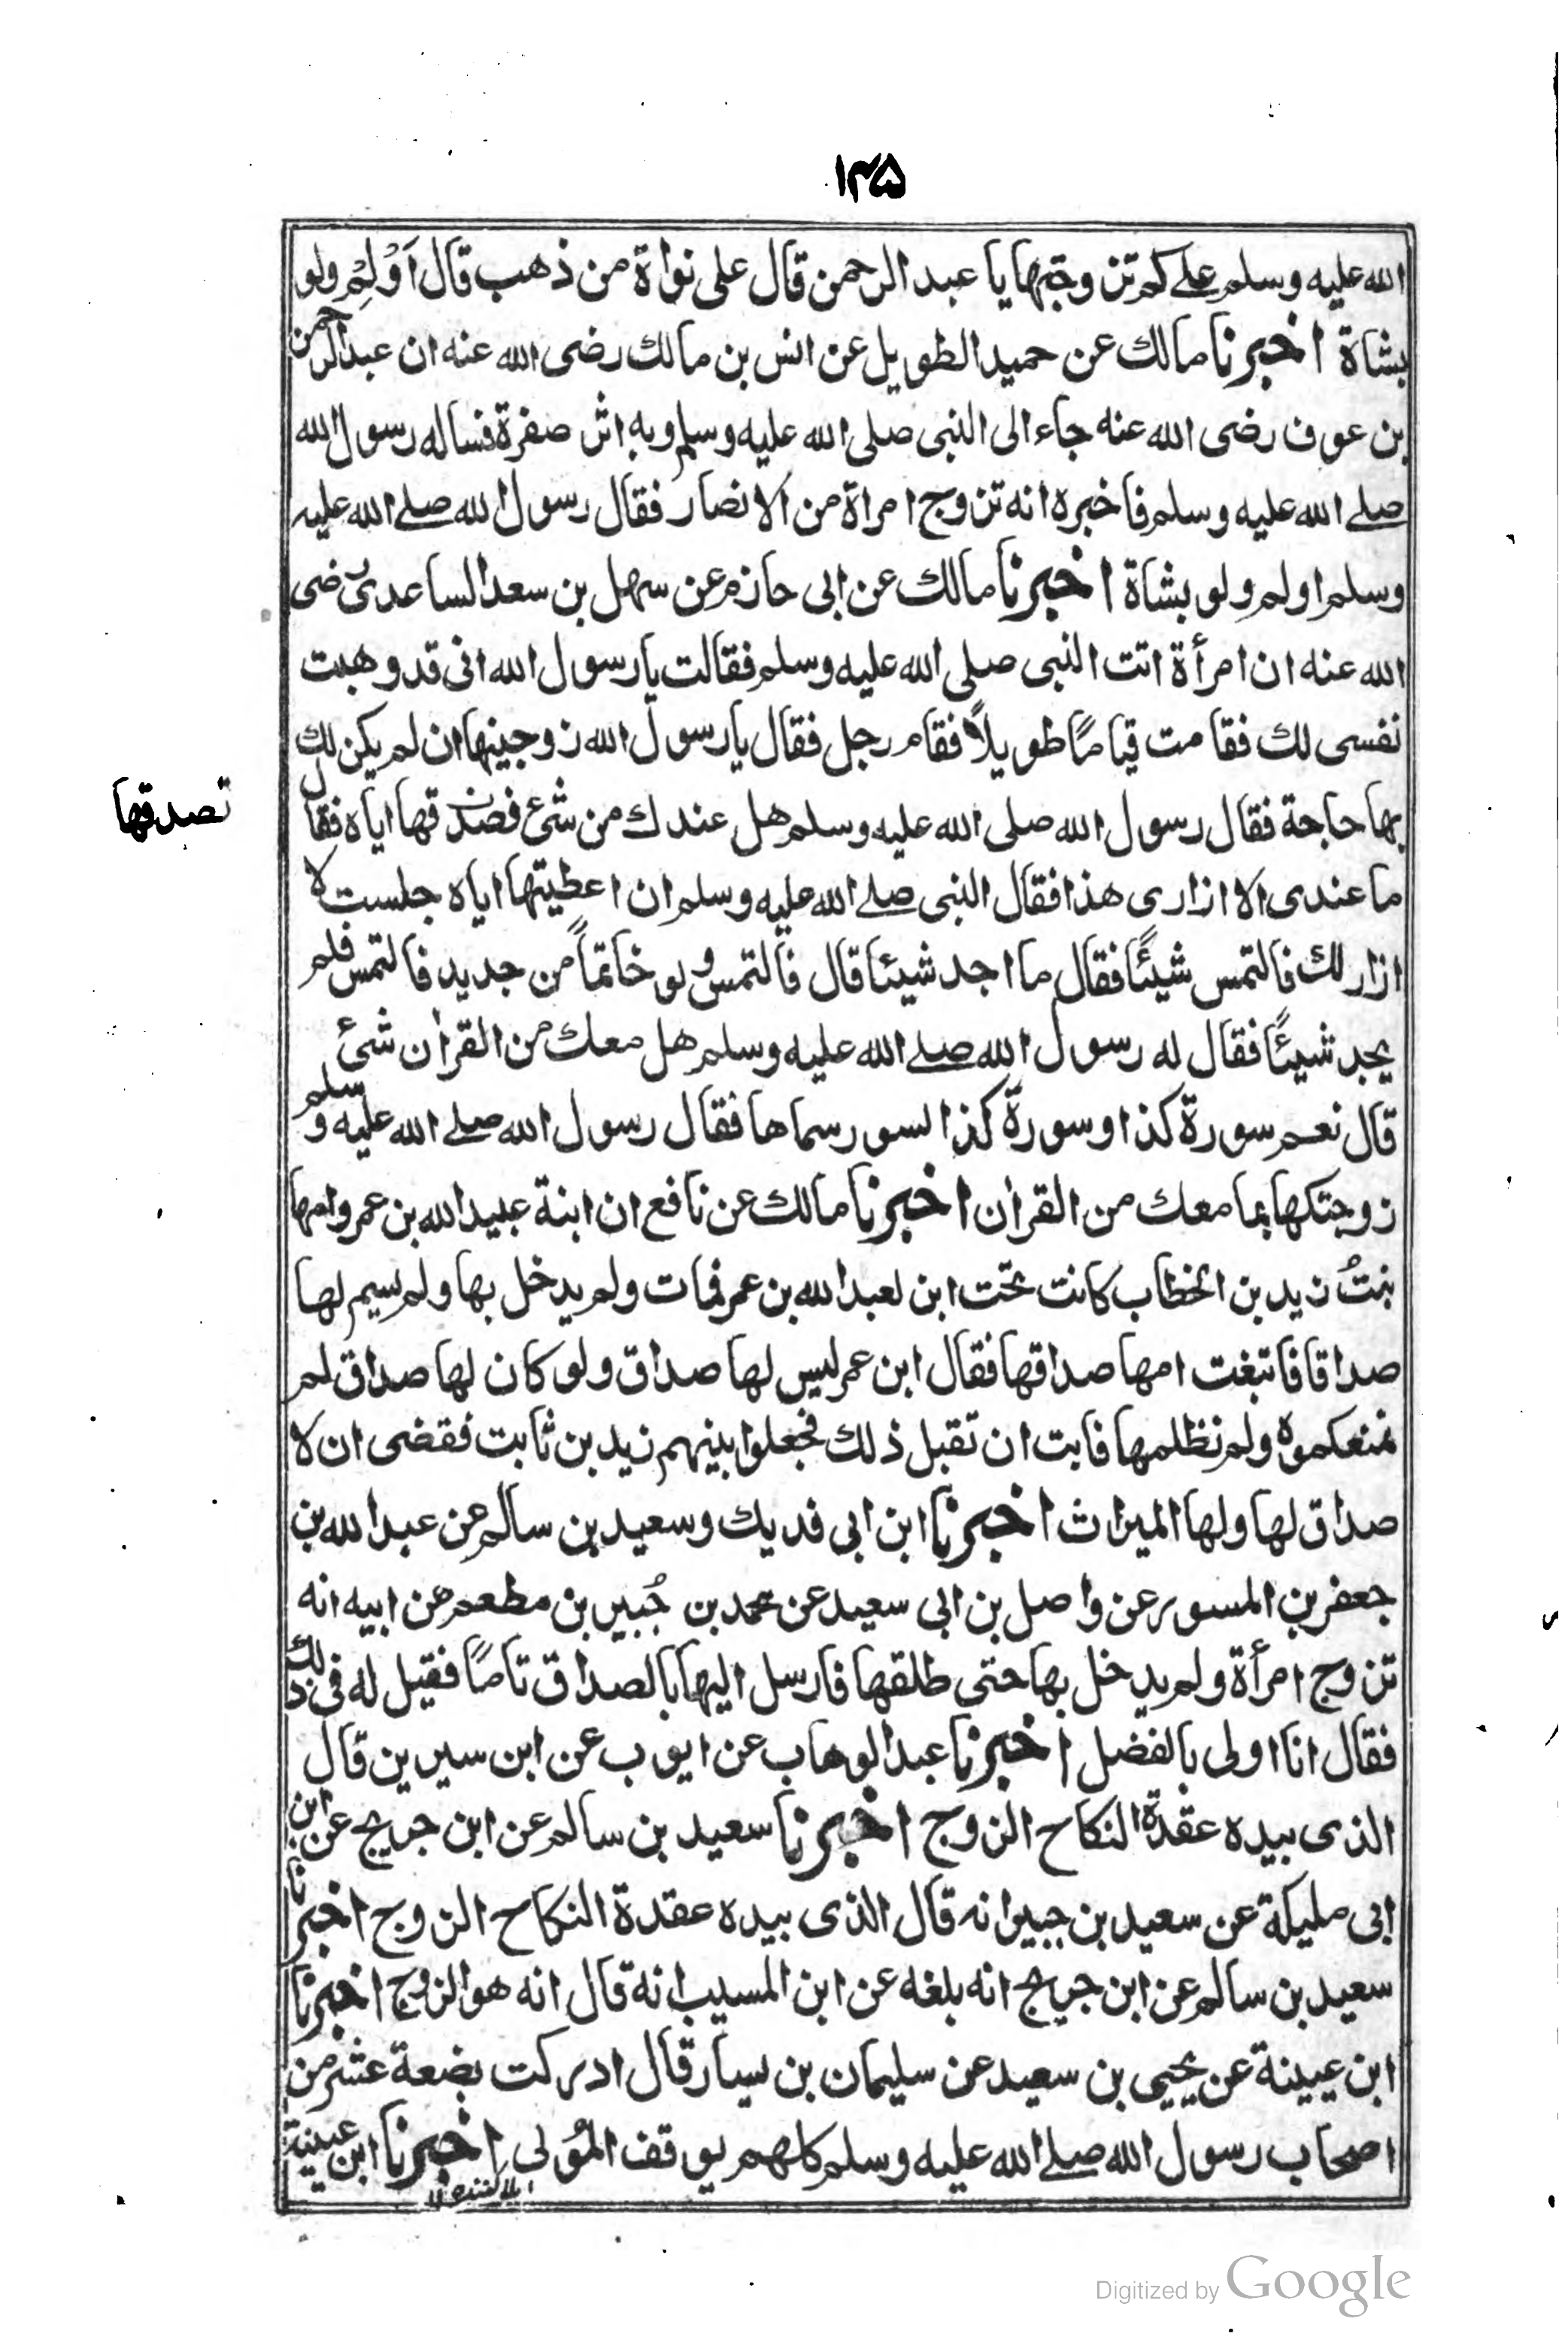 ١٣٥
الله عليه وسلم على كم تزوجتها يا عبد الرحمن قال على نواة من ذهب قال اَوْلِمْ ولو
بشاة اخبرنا مالك عن حميد الطويل عن انس بن مالك رضى الله عنه ان عبد الرحمن
بن عوف رضى الله عنه جاء الى النبى صلى الله عليه وسلم وبه اثر صفرة فساله رسول الله
صلے الله عليه وسلم فاخبره انه تزوج امراة من الانصار فقال رسول الله صلے الله عليه
وسلم اولم ولو بشاة اخبرنا مالك عن ابى حازم عن سهل بن سعد الساعدى رضى
الله عنه ان امرأة اتت النبى صلى الله عليه وسلم فقالت يا رسول الله انى قد وهبت
نفسى لك فقامت قيامًا طويلاً فقام رجل فقال يا رسول الله زوجنيها ان لم يكن لك
بها حاجة فقال رسول الله صلى الله عليه وسلم هل عندك من شئ فصدقها اياه فقال
تصدقها
ما عندى الا ازارى هذا فقال النبى صلے الله عليه وسلم ان اعطيتها اياه جلست لا
ازار لك فالتمس شيئًا فقال ما اجد شيئا قال فالتمس ولو خاتمًا من جديد فالتمس فلم
يجد شيئًا فقال له رسول الله صلے الله عليه وسلم هل معك من القران شئ
قال نعم سورة كذا وسورة كذا لسور سماها فقال رسول الله صلے الله عليه وسلم
زوجتكها بما معك من القران اخبرنا مالك عن نافع ان ابنة عبيد الله بن عمر وامها
بنتُ زيد بن الخطاب كانت تحت ابن لعبد الله بن عمر فمات ولم يدخل بها ولم يسم لها
صداقا فابتغت امها صداقها فقال ابن عمر ليس لها صداق ولو كان لها صداق لم
نمنعكموه ولم نظلمها فابت ان تقبل ذلك فجعلوا بينهم زيد بن ثابت فقضى ان لا
صداق لها ولها الميراث اخبرنا ابن ابى فديك وسعيد بن سالم عن عبد الله بن
جعفر بن المسور عن واصل بن ابى سعيد عن محمد بن جُبير بن مطعم عن ابيه انه
تزوج امرأة ولم يدخل بها حتى طلقها فارسل اليها بالصداق تامًا فقيل له فى ذلك
فقال انا اولى بالفضل اخبرنا عبد الوهاب عن ايوب عن ابن سيرين قال
الذى بيده عقدة النكاح الزوج اخبرنا سعيد بن سالم عن ابن جريج عن ابن
ابى مليكة عن سعيد بن جبير انه قال الذى بيده عقدة النكاح الزوج اخبرنا
سعيد بن سالم عن ابن جريج انه بلغه عن ابن المسيب انه قال انه هو الزوج اخبرنا
ابن عيينة عن يحيى بن سعيد عن سليمان بن يسار قال ادركت بضعة عشر من
اصحاب رسول الله صلے الله عليه وسلم كلهم يوقف المُولى اخبرنا ابن عيينة
Digitized by Google